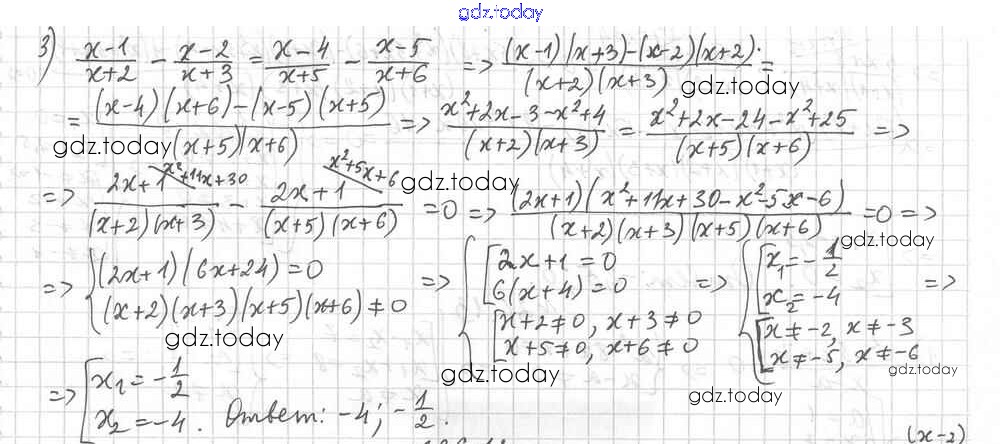 gdz.today
3) (x-1)/(x+2) - (x-2)/(x+3) = (x-4)/(x+5) - (x-5)/(x+6) => ((x-1)(x+3)-(x-2)(x+2))/((x+2)(x+3)) =
gdz.today
= ((x-4)(x+6)-(x-5)(x+5))/((x+5)(x+6)) => (x²+2x-3-x²+4)/((x+2)(x+3)) = (x²+2x-24-x²+25)/((x+5)(x+6)) =>
gdz.today
=> (2x+1)/((x+2)(x+3)) \x²+11x+30 - (2x+1)/((x+5)(x+6)) \x²+5x+6 = 0 => ((2x+1)(x²+11x+30-x²-5x-6))/((x+2)(x+3)(x+5)(x+6)) = 0 =>
gdz.today
gdz.today
=> { (2x+1)(6x+24)=0
(x+2)(x+3)(x+5)(x+6)≠0
=> { [ 2x+1=0
6(x+4)=0
[ x+2≠0, x+3≠0
x+5≠0, x+6≠0
=> { [ x₁=-1/2
x₂=-4
[ x≠-2, x≠-3
x≠-5, x≠-6
=>
gdz.today
gdz.today
gdz.today
=> [ x₁=-1/2
x₂=-4. Ответ: -4; -1/2.
gdz.today
(x-2)